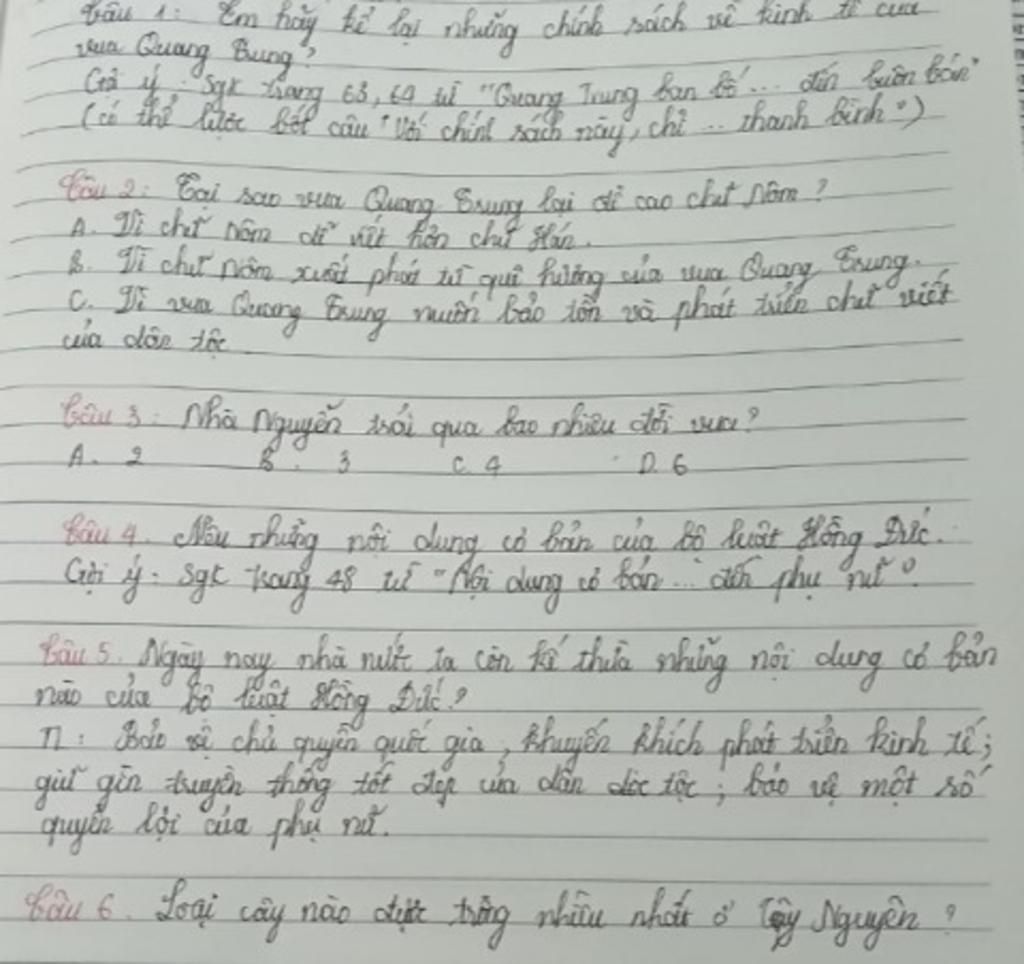 Câu 1: Em hãy kể lại những chính sách về kinh tế của
vua Quang Trung?
Gợi ý: Sgk trang 63, 64 từ "Quang Trung ban bố... đến buôn bán"
(có thể lược bớt câu "Với chính sách này, chỉ ... thanh bình")
Câu 2: Tại sao vua Quang Trung lại đề cao chữ Nôm?
A. Vì chữ Nôm dễ viết hơn chữ Hán.
B. Vì chữ Nôm xuất phát từ quê hương của vua Quang Trung.
C. Vì vua Quang Trung muốn bảo tồn và phát triển chữ viết
của dân tộc
Câu 3: Nhà Nguyễn trải qua bao nhiêu đời vua?
A. 2 B. 3 C. 4 D. 6
Câu 4. Nêu những nội dung cơ bản của bộ luật Hồng Đức.
Gợi ý: Sgk trang 48 từ "Nội dung cơ bản ... đến phụ nữ".
Câu 5. Ngày nay nhà nước ta còn kế thừa những nội dung cơ bản
nào của bộ luật Hồng Đức?
TL: Bảo vệ chủ quyền quốc gia, khuyến khích phát triển kinh tế;
giữ gìn truyền thống tốt đẹp của dân dộc tộc; bảo vệ một số
quyền lợi của phụ nữ.
Câu 6. Loại cây nào được trồng nhiều nhất ở Tây Nguyên?